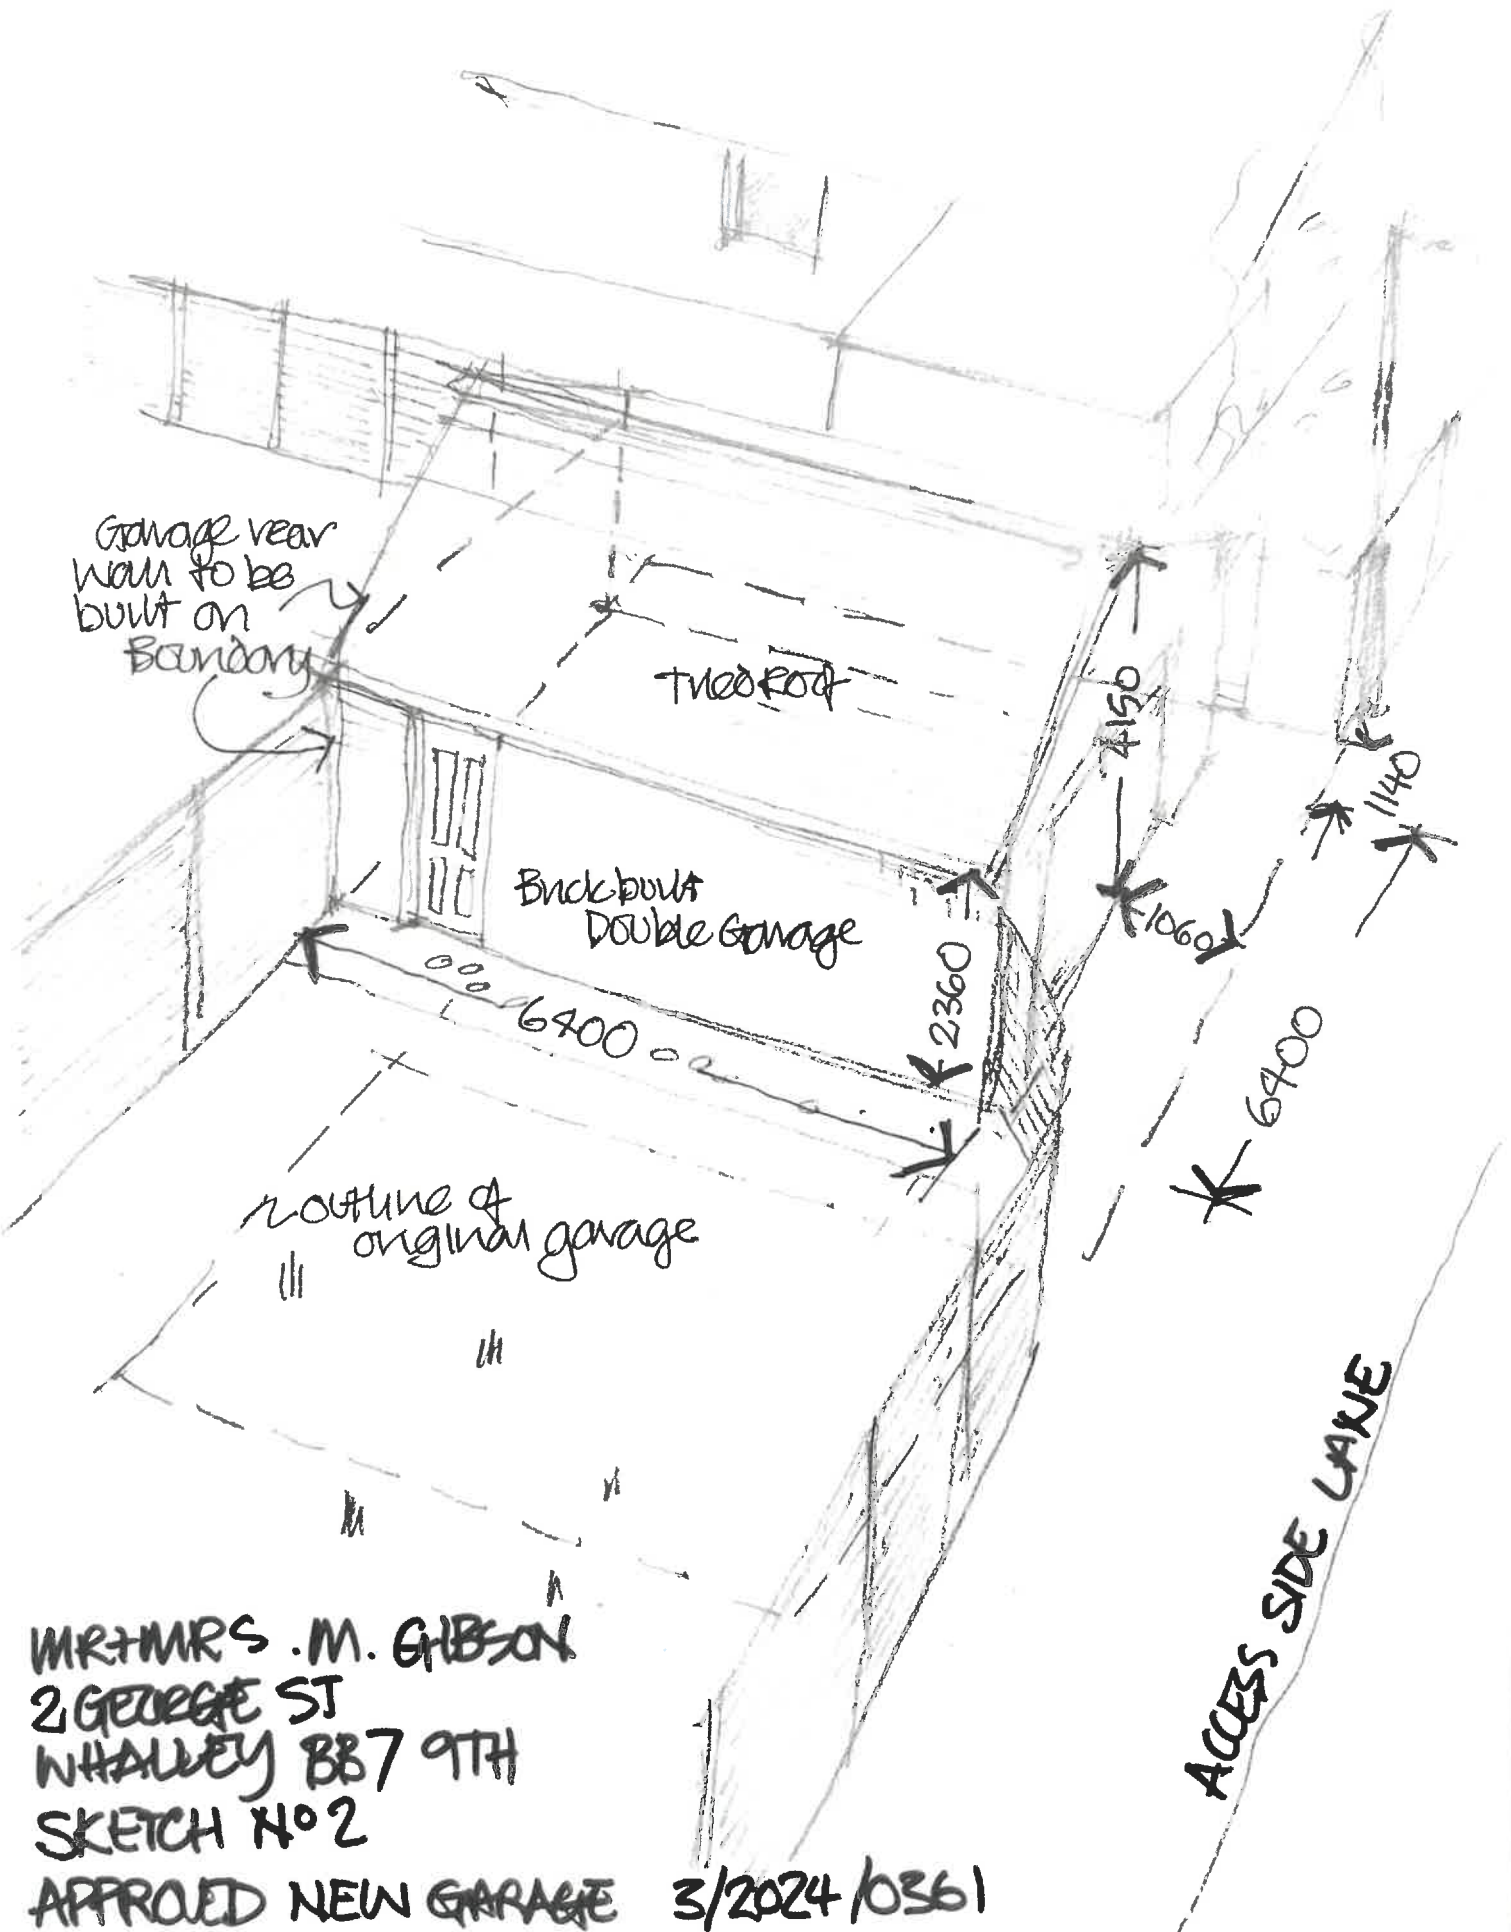 Garage rear
wall to be
built on
Boundary
Tiled Roof
4150
1140
Brick built
Double Garage
1060
2360
6400
6400
outline of
original garage
ACCESS SIDE LANE
MR+MRS .M. GIBSON
2 GEORGE ST
WHALLEY BB7 9TH
SKETCH No 2
APPROVED NEW GARAGE 3/2024/0361